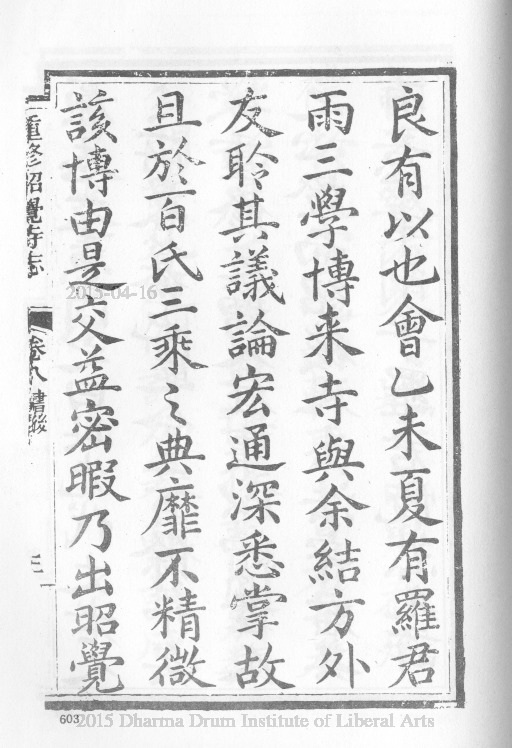 良有以也會乙未夏有羅君
雨三學博来寺與余結方外
友聆其議論宏通深悉掌故
且於百氏三乘之典靡不精微
該博由是交益密暇乃出昭覺
重修昭覺寺志
卷八
2015-04-16
603
2015 Dharma Drum Institute of Liberal Arts